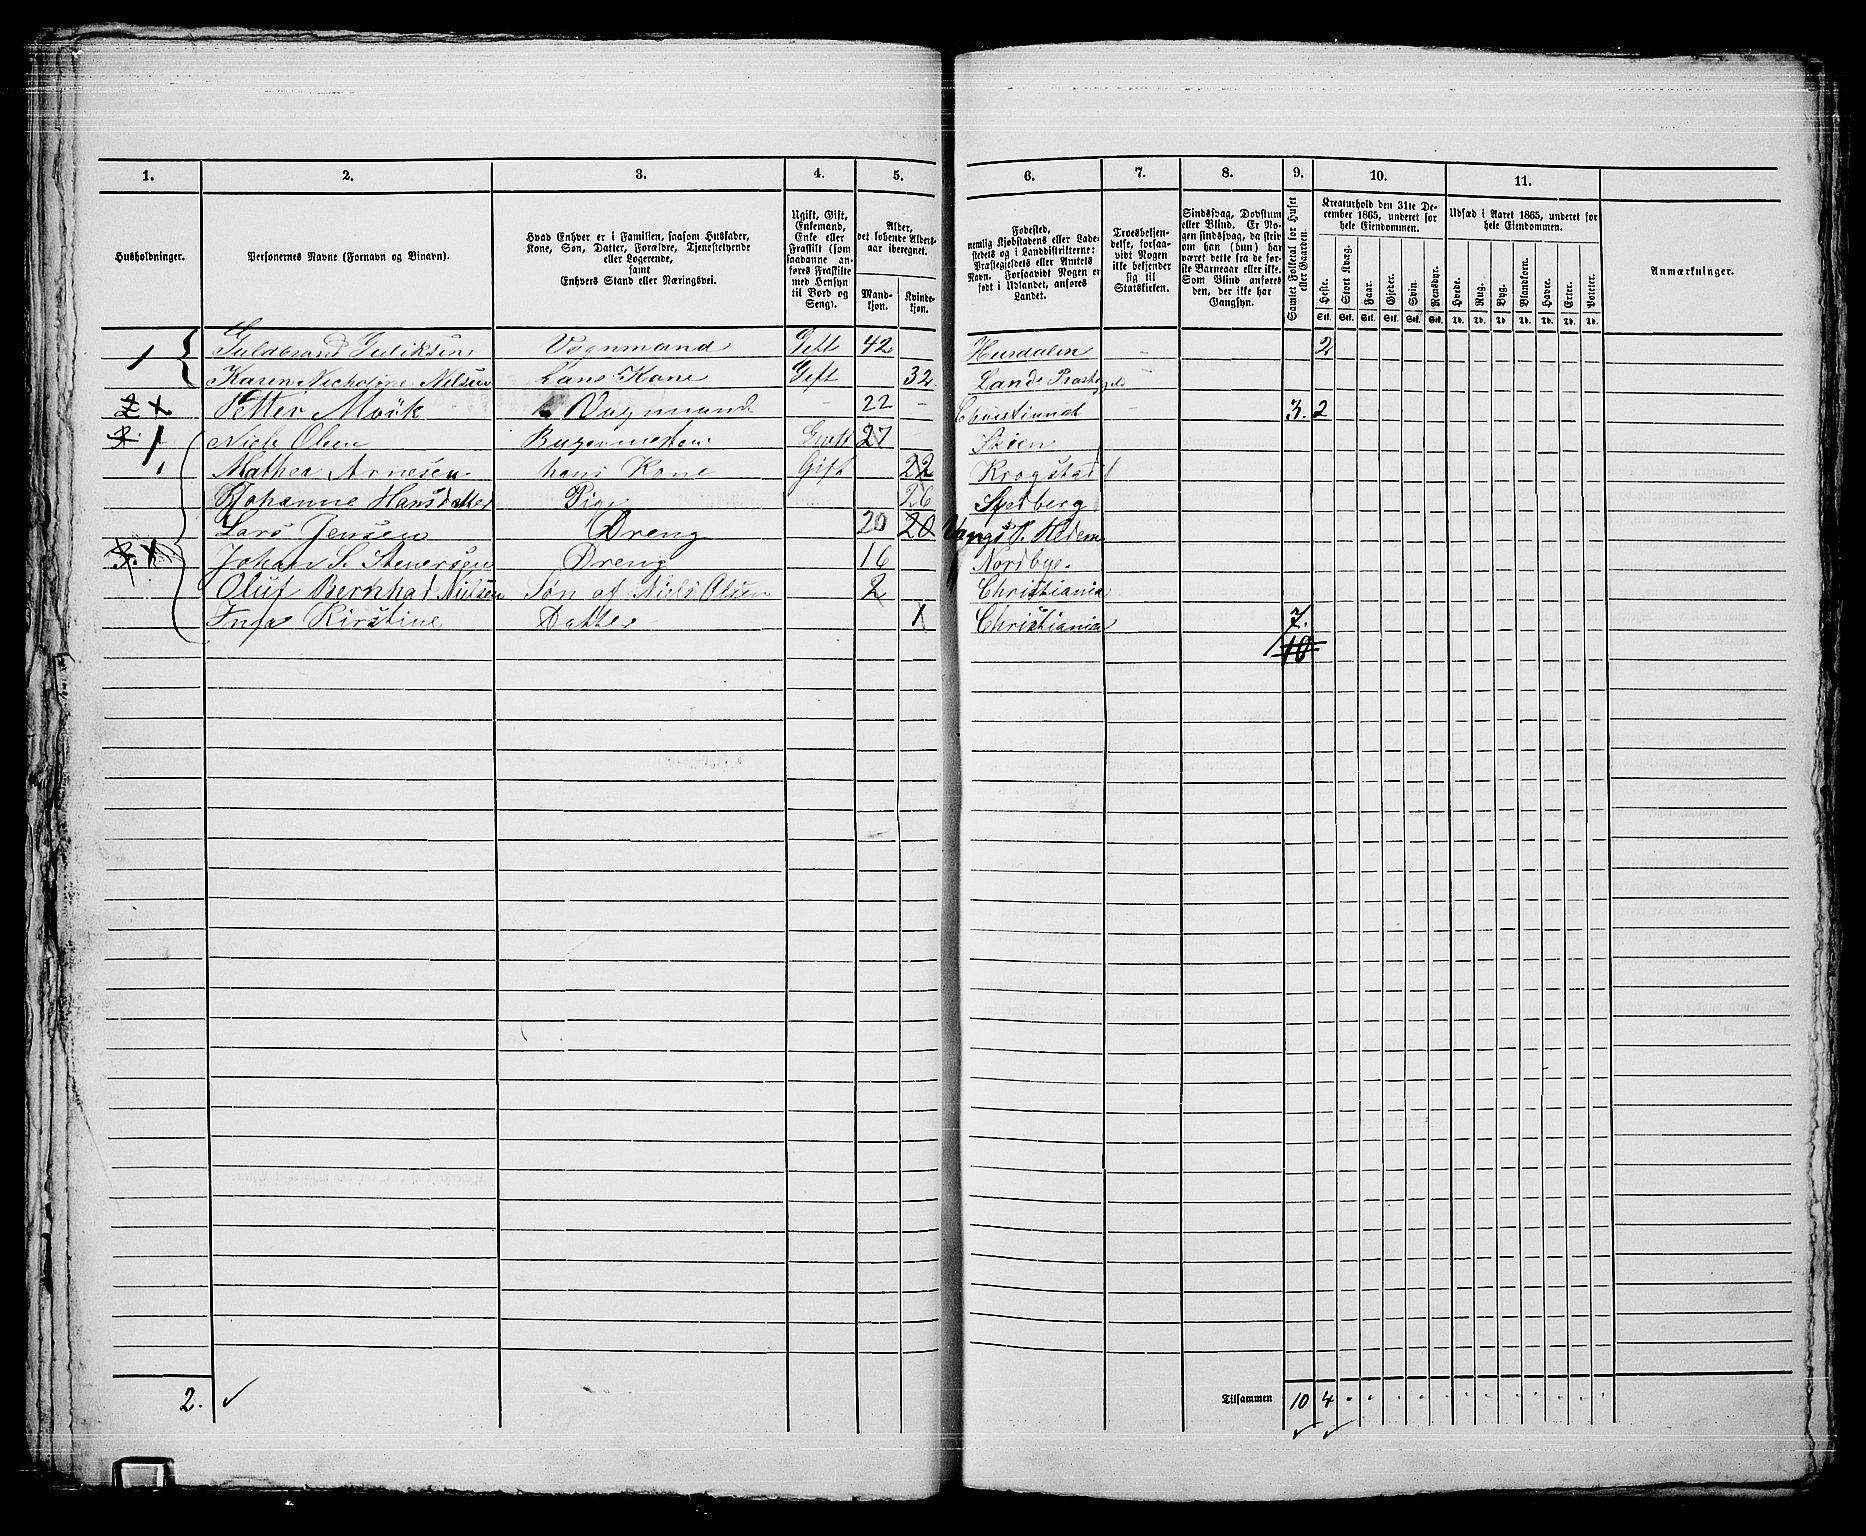 1. 2. 3. 4. 5. 6. 7. 8. 9. 10. 11.
Husholdninger.
Personernes Navne (Fornavn og Binavn).
Hvad Enhver er i Familien, saasom Husfader,
Kone, Søn, Datter, Forældre, Tjenestetyende
eller Logerende,
samt
Enhvers Stand eller Næringsvei.
Ugift, Gift,
Enkemand,
Enke eller
Fraskilt (som
saadanne an-
føres Fraskilte
med Hensyn
til Bord og
Seng).
Alder,
det løbende Alders-
aar iberegnet.
Mand-
kjøn.
Kvinde-
kjøn.
Fødested,
nemlig Kjøbstadens eller Lade-
stedets og i Landdistrikterne:
Præstegjeldets eller Amtets
Navn. Forsaavidt Nogen er
født i Udlandet, anføres
Landet.
Troesbekjen-
delse, forsaa-
vidt Nogen
ikke bekjender
sig til
Statskirken.
Sindssvag, Døvstum
eller Blind. Er No-
gen sindssvag, da skriv
om han (hun) har
været dette fra de før-
ste Barneaar eller ikke.
Som Blind anføres
den, der ikke har
Gangsyn.
Samlet Folketal for Huset
eller Gaarden.
Kreaturhold den 31te De-
cember 1865, underet for
hele Eiendommen.
Heste. Stort Kvæg. Faar. Gjeder. Svin. Rensdyr.
Stk. Stk. Stk. Stk. Stk. Stk.
Udsæd i Aaret 1865, underet for
hele Eiendommen.
Hvede. Rug. Byg. Blandkorn. Havre. Erter. Poteter.
Td. Td. Td. Td. Td. Td. Td.
Anmærkninger.
1 Guldbrand Guliksen Vognmand Gift 42 Hurdalen 2
Karen Nicholine Nilsen Hans Kone Gift 32 Lands Præstegjeld
2 x Petter Mørk Vognmand 22 Christiansd 3. 2
2. 1 Niels Olsen Gift 27 Skien
Mathea Arnesen hans Kone Gift 22 Krogstad
Johanne Hansdatter Pige 26 Spedberg
Lars Jensen Dreng 20 20 Vangs P. Hedem
3. x Johan S. Stenersen Dreng 16 Nordbye.
Oluf Bernhard Nielsen Søn af Niels Olsen 2 Christiania
Inga Kirstine Datter 1 Christiania 7.
10
2. ✓ Tilsammen 10 4
✓ ✓